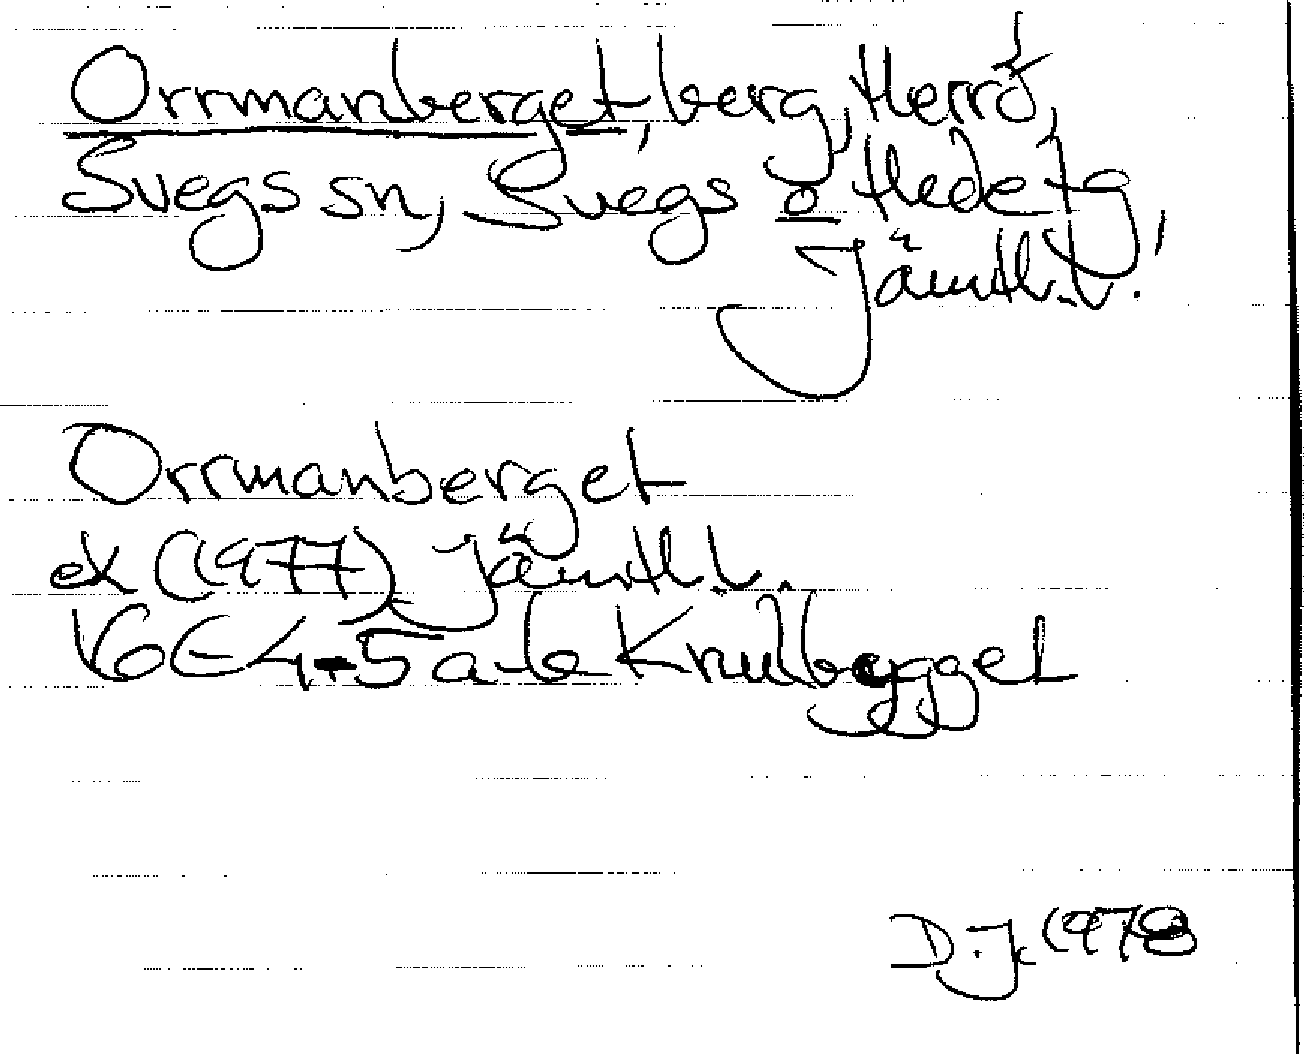 Orrmanberget, berg, Herrö,
Svegs sn, Svegs o Hede tg,
Jämtl. l.
Orrmanberget
ek (1977) Jämtl. l.
16E 4-5 a-b Knullbygget
D.J. 1978